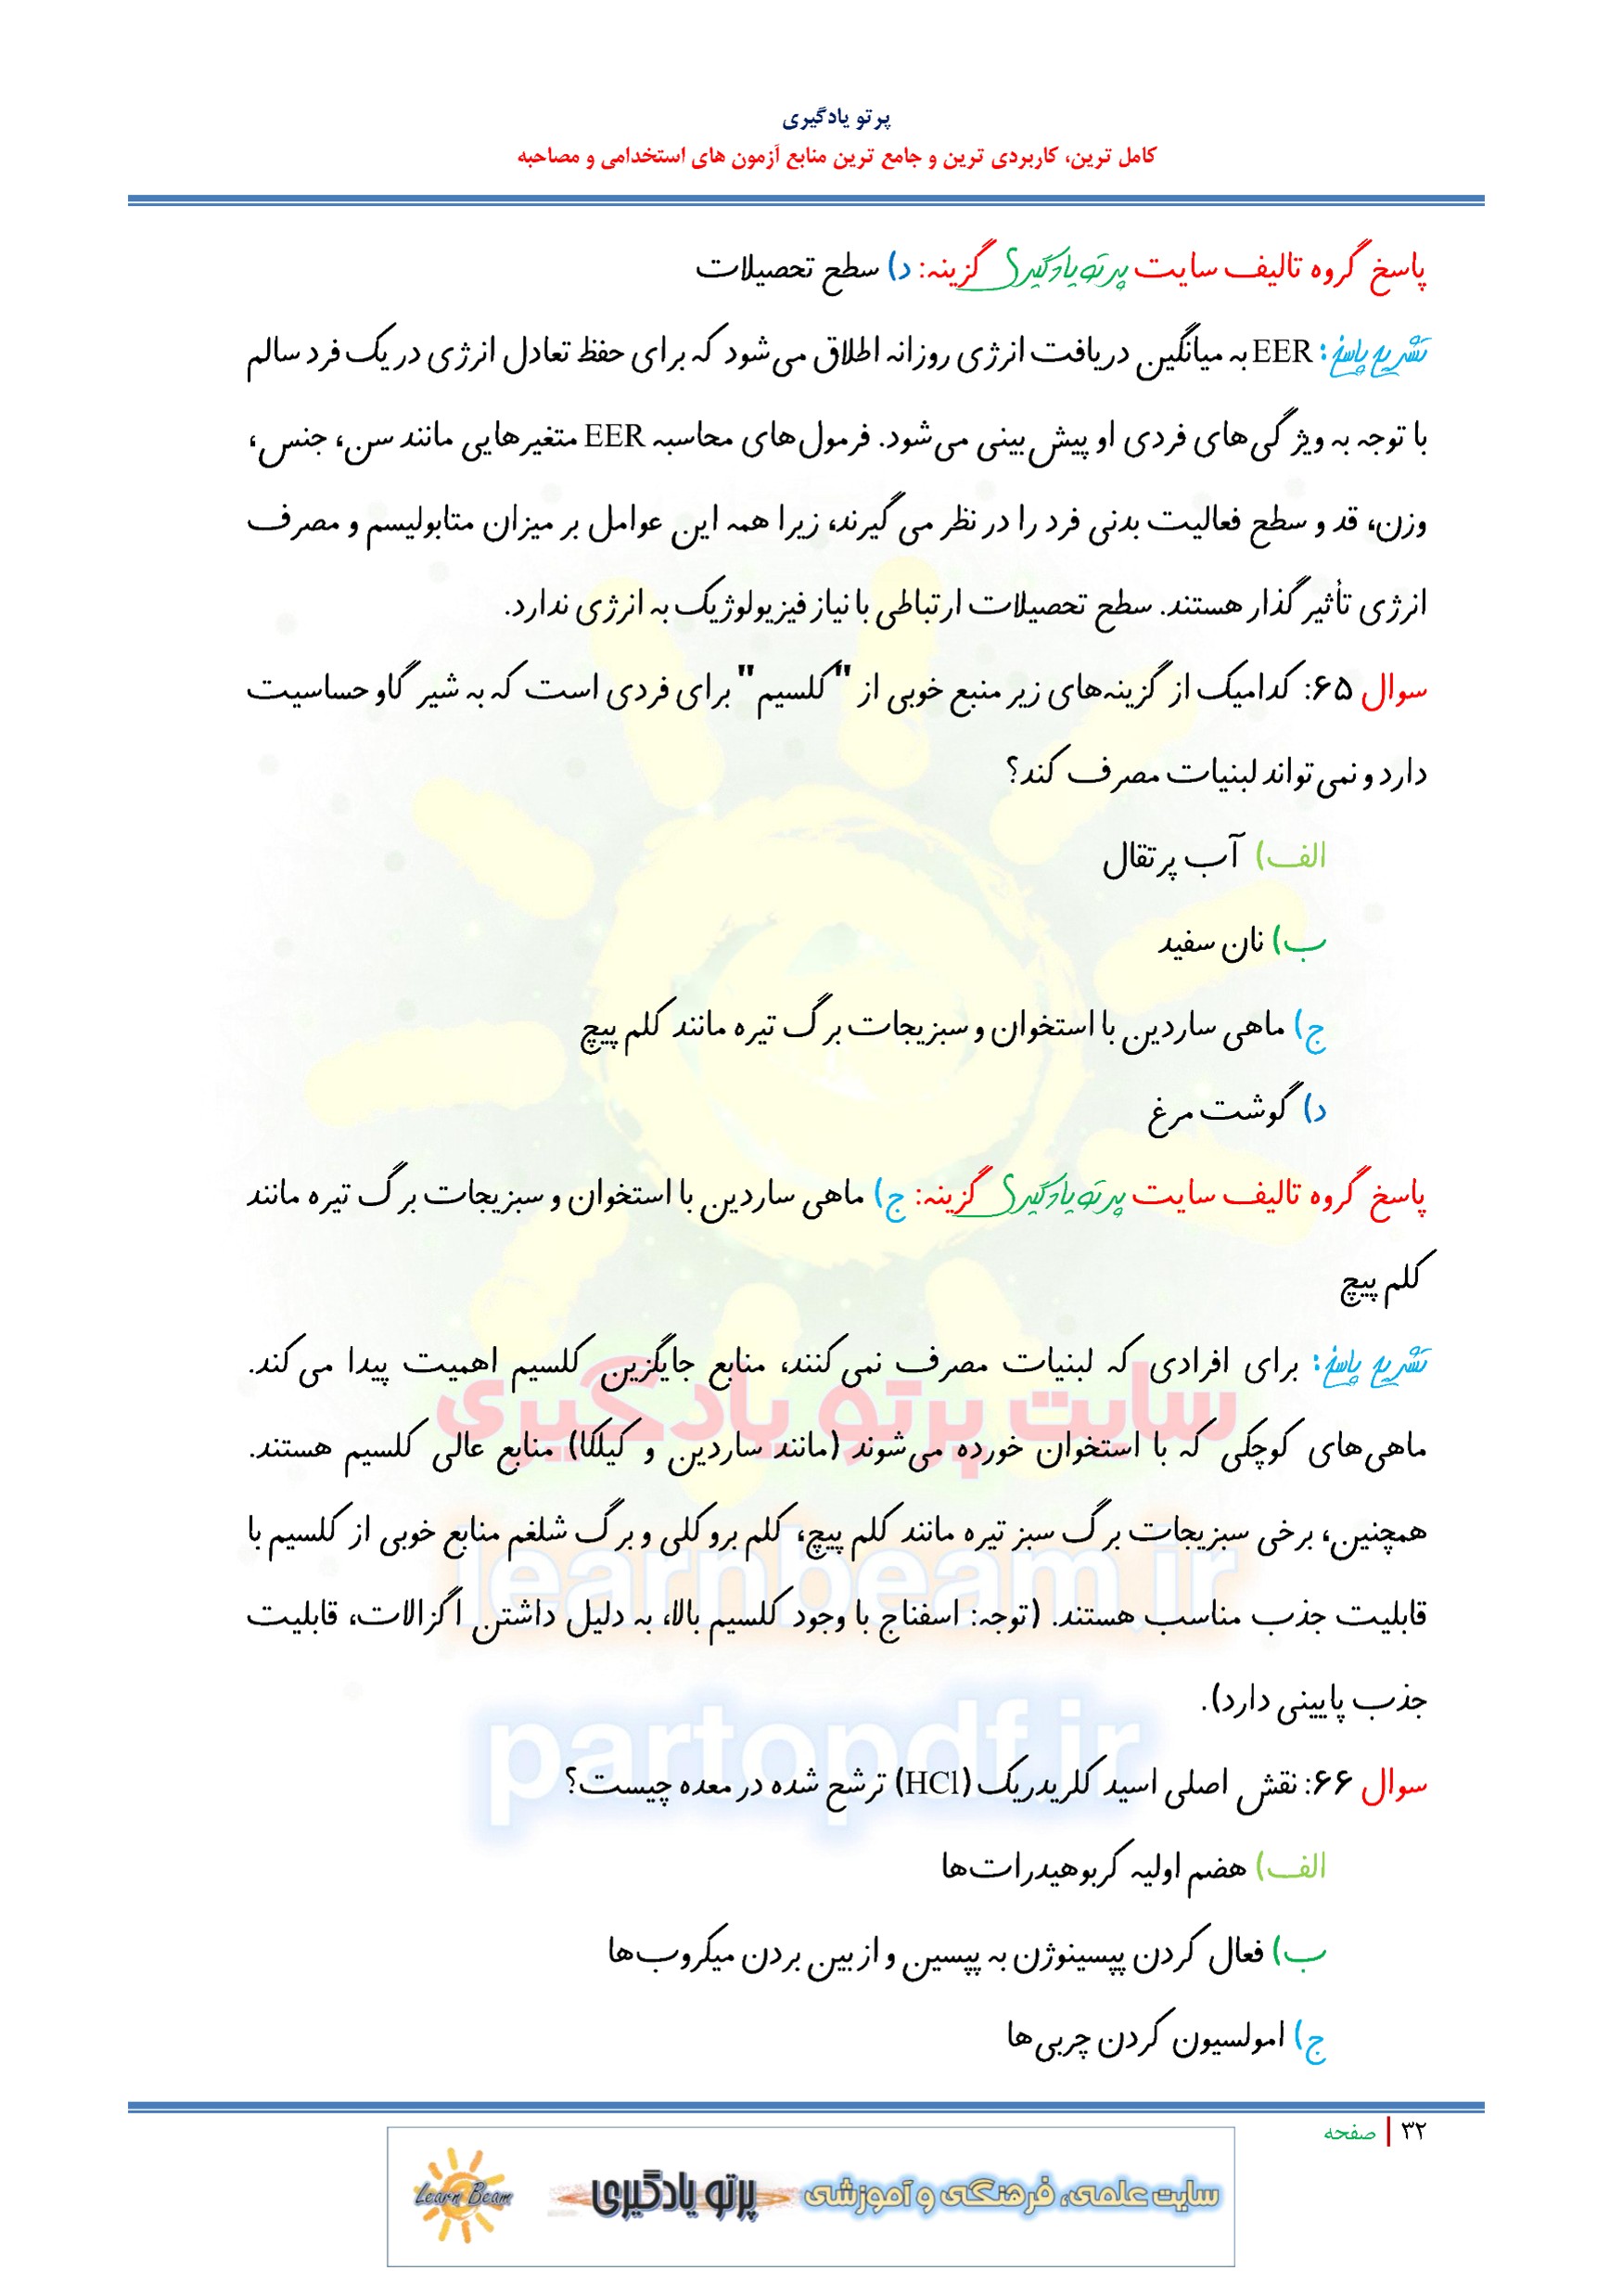 پرتو یادگیری
کامل ترین، کاربردی ترین و جامع ترین منابع آزمون های استخدامی و مصاحبه
پاسخ گروه تالیف سایت پرتو یادگیری گزینه: د) سطح تحصیلات
تشریح پاسخ: EER به میانگین دریافت انرژی روزانه اطلاق می‌شود که برای حفظ تعادل انرژی در یک فرد سالم
با توجه به ویژگی‌های فردی او پیش‌بینی می‌شود. فرمول‌های محاسبه EER متغیرهایی مانند سن، جنس،
وزن، قد و سطح فعالیت بدنی فرد را در نظر می گیرند، زیرا همه این عوامل بر میزان متابولیسم و مصرف
انرژی تأثیرگذار هستند. سطح تحصیلات ارتباطی با نیاز فیزیولوژیک به انرژی ندارد.
سوال ۶۵: کدامیک از گزینه‌های زیر منبع خوبی از "کلسیم" برای فردی است که به شیر گاو حساسیت
دارد و نمی‌تواند لبنیات مصرف کند؟
الف) آب پرتقال
ب) نان سفید
ج) ماهی ساردین با استخوان و سبزیجات برگ تیره مانند کلم پیچ
د) گوشت مرغ
پاسخ گروه تالیف سایت پرتو یادگیری گزینه: ج) ماهی ساردین با استخوان و سبزیجات برگ تیره مانند
کلم پیچ
تشریح پاسخ: برای افرادی که لبنیات مصرف نمی‌کنند، منابع جایگزین کلسیم اهمیت پیدا می‌کند.
ماهی‌های کوچکی که با استخوان خورده می‌شوند (مانند ساردین و کیلکا) منابع عالی کلسیم هستند.
همچنین، برخی سبزیجات برگ سبز تیره مانند کلم پیچ، کلم بروکلی و برگ شلغم منابع خوبی از کلسیم با
قابلیت جذب مناسب هستند. (توجه: اسفناج با وجود کلسیم بالا، به دلیل داشتن اگزالات، قابلیت
جذب پایینی دارد).
سوال ۶۶: نقش اصلی اسید کلریدریک (HCl) ترشح شده در معده چیست؟
الف) هضم اولیه کربوهیدرات‌ها
ب) فعال کردن پپسینوژن به پپسین و از بین بردن میکروب‌ها
ج) امولسیون کردن چربی‌ها
سایت پرتو یادگیری
learnbeam.ir
partopdf.ir
۳۲ | صفحه
سایت علمی، فرهنگی و آموزشی پرتو یادگیری Learn Beam